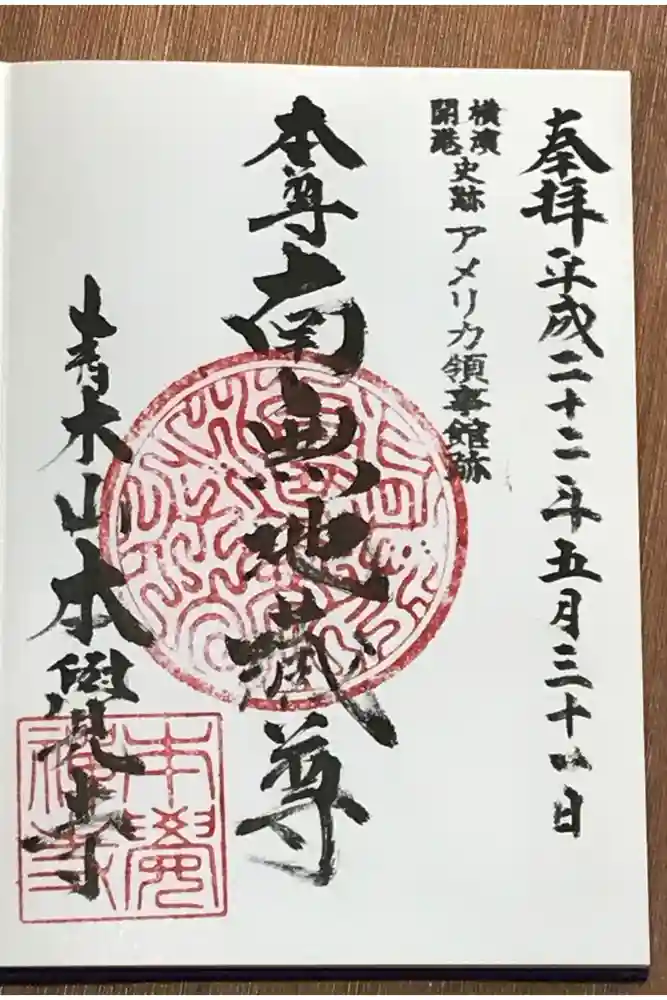 奉拝 平成二十二年五月三十一日
横濱
開港
史跡アメリカ領事館跡
本尊南無地蔵尊
青木山本覺寺
本覺
禅寺